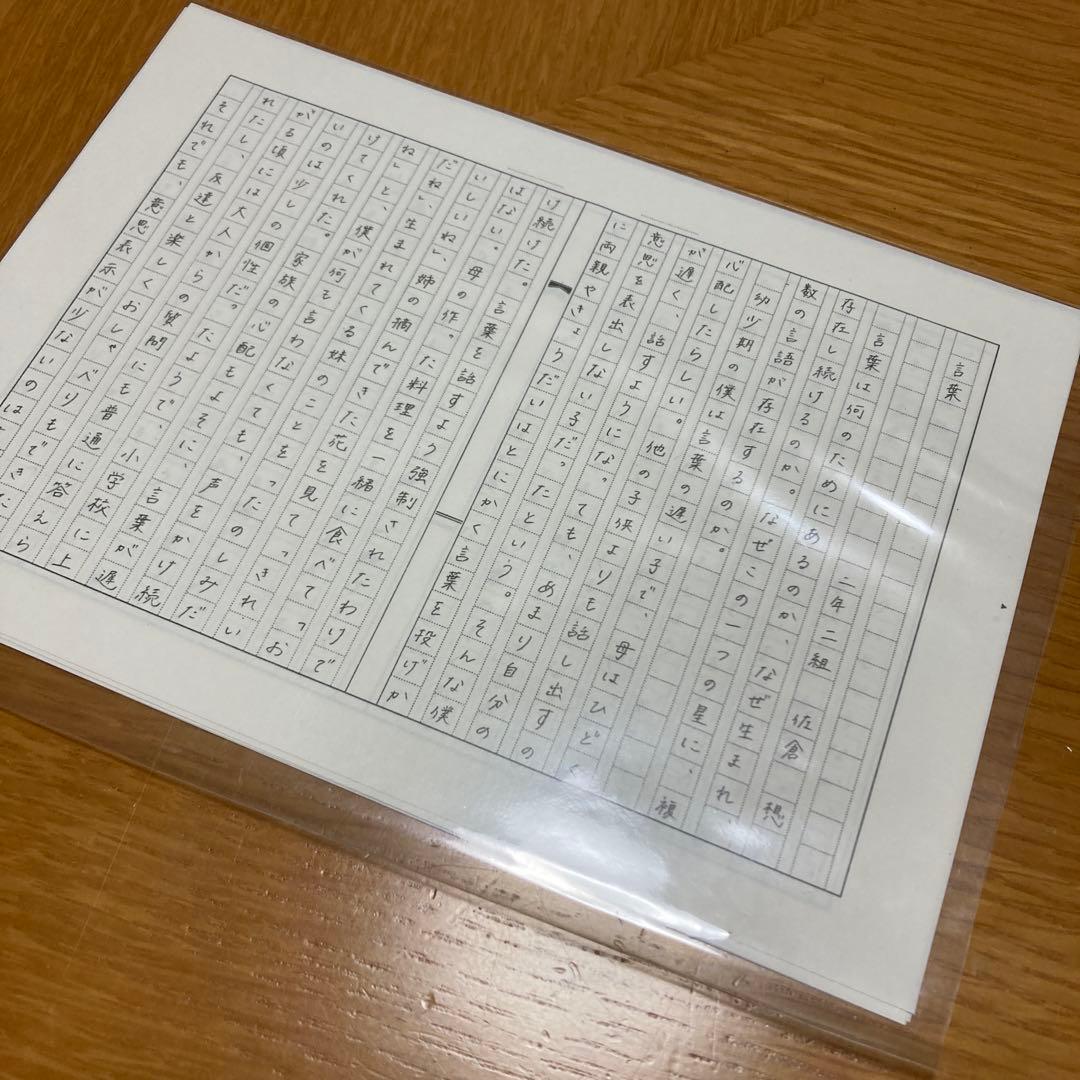 言葉
二年二組　佐倉　想
言葉は何のためにあるのか、なぜ生まれ、
存在し続けるのか。なぜこの一つの星に、複
数の言語が存在するのか。
幼少期の僕は言葉の遅い子で、母はひどく
心配したらしい。他の子供よりも話し出すの
が遅く、話すようになっても、あまり自分の
意思を表出しない子だったという。そんな僕
に両親やきょうだいはとにかく言葉を投げか
け続けた。言葉を話すよう強制されたわけで
はない。母の作った料理を一緒に食べて「お
いしいね」、姉の摘んできた花を見て「きれい
だね」、生まれてくる妹のことを「たのしみだ
ね」と、僕が何も言わなくても、声をかけ続
けてくれた。家族の心配をよそに、言葉が遅
いのは少しの個性だったようで、小学校に上
がる頃には大人からの質問にも普通に答えら
れたし、友達と楽しくおしゃべりもできた
それでも、意思表示が少ないのは